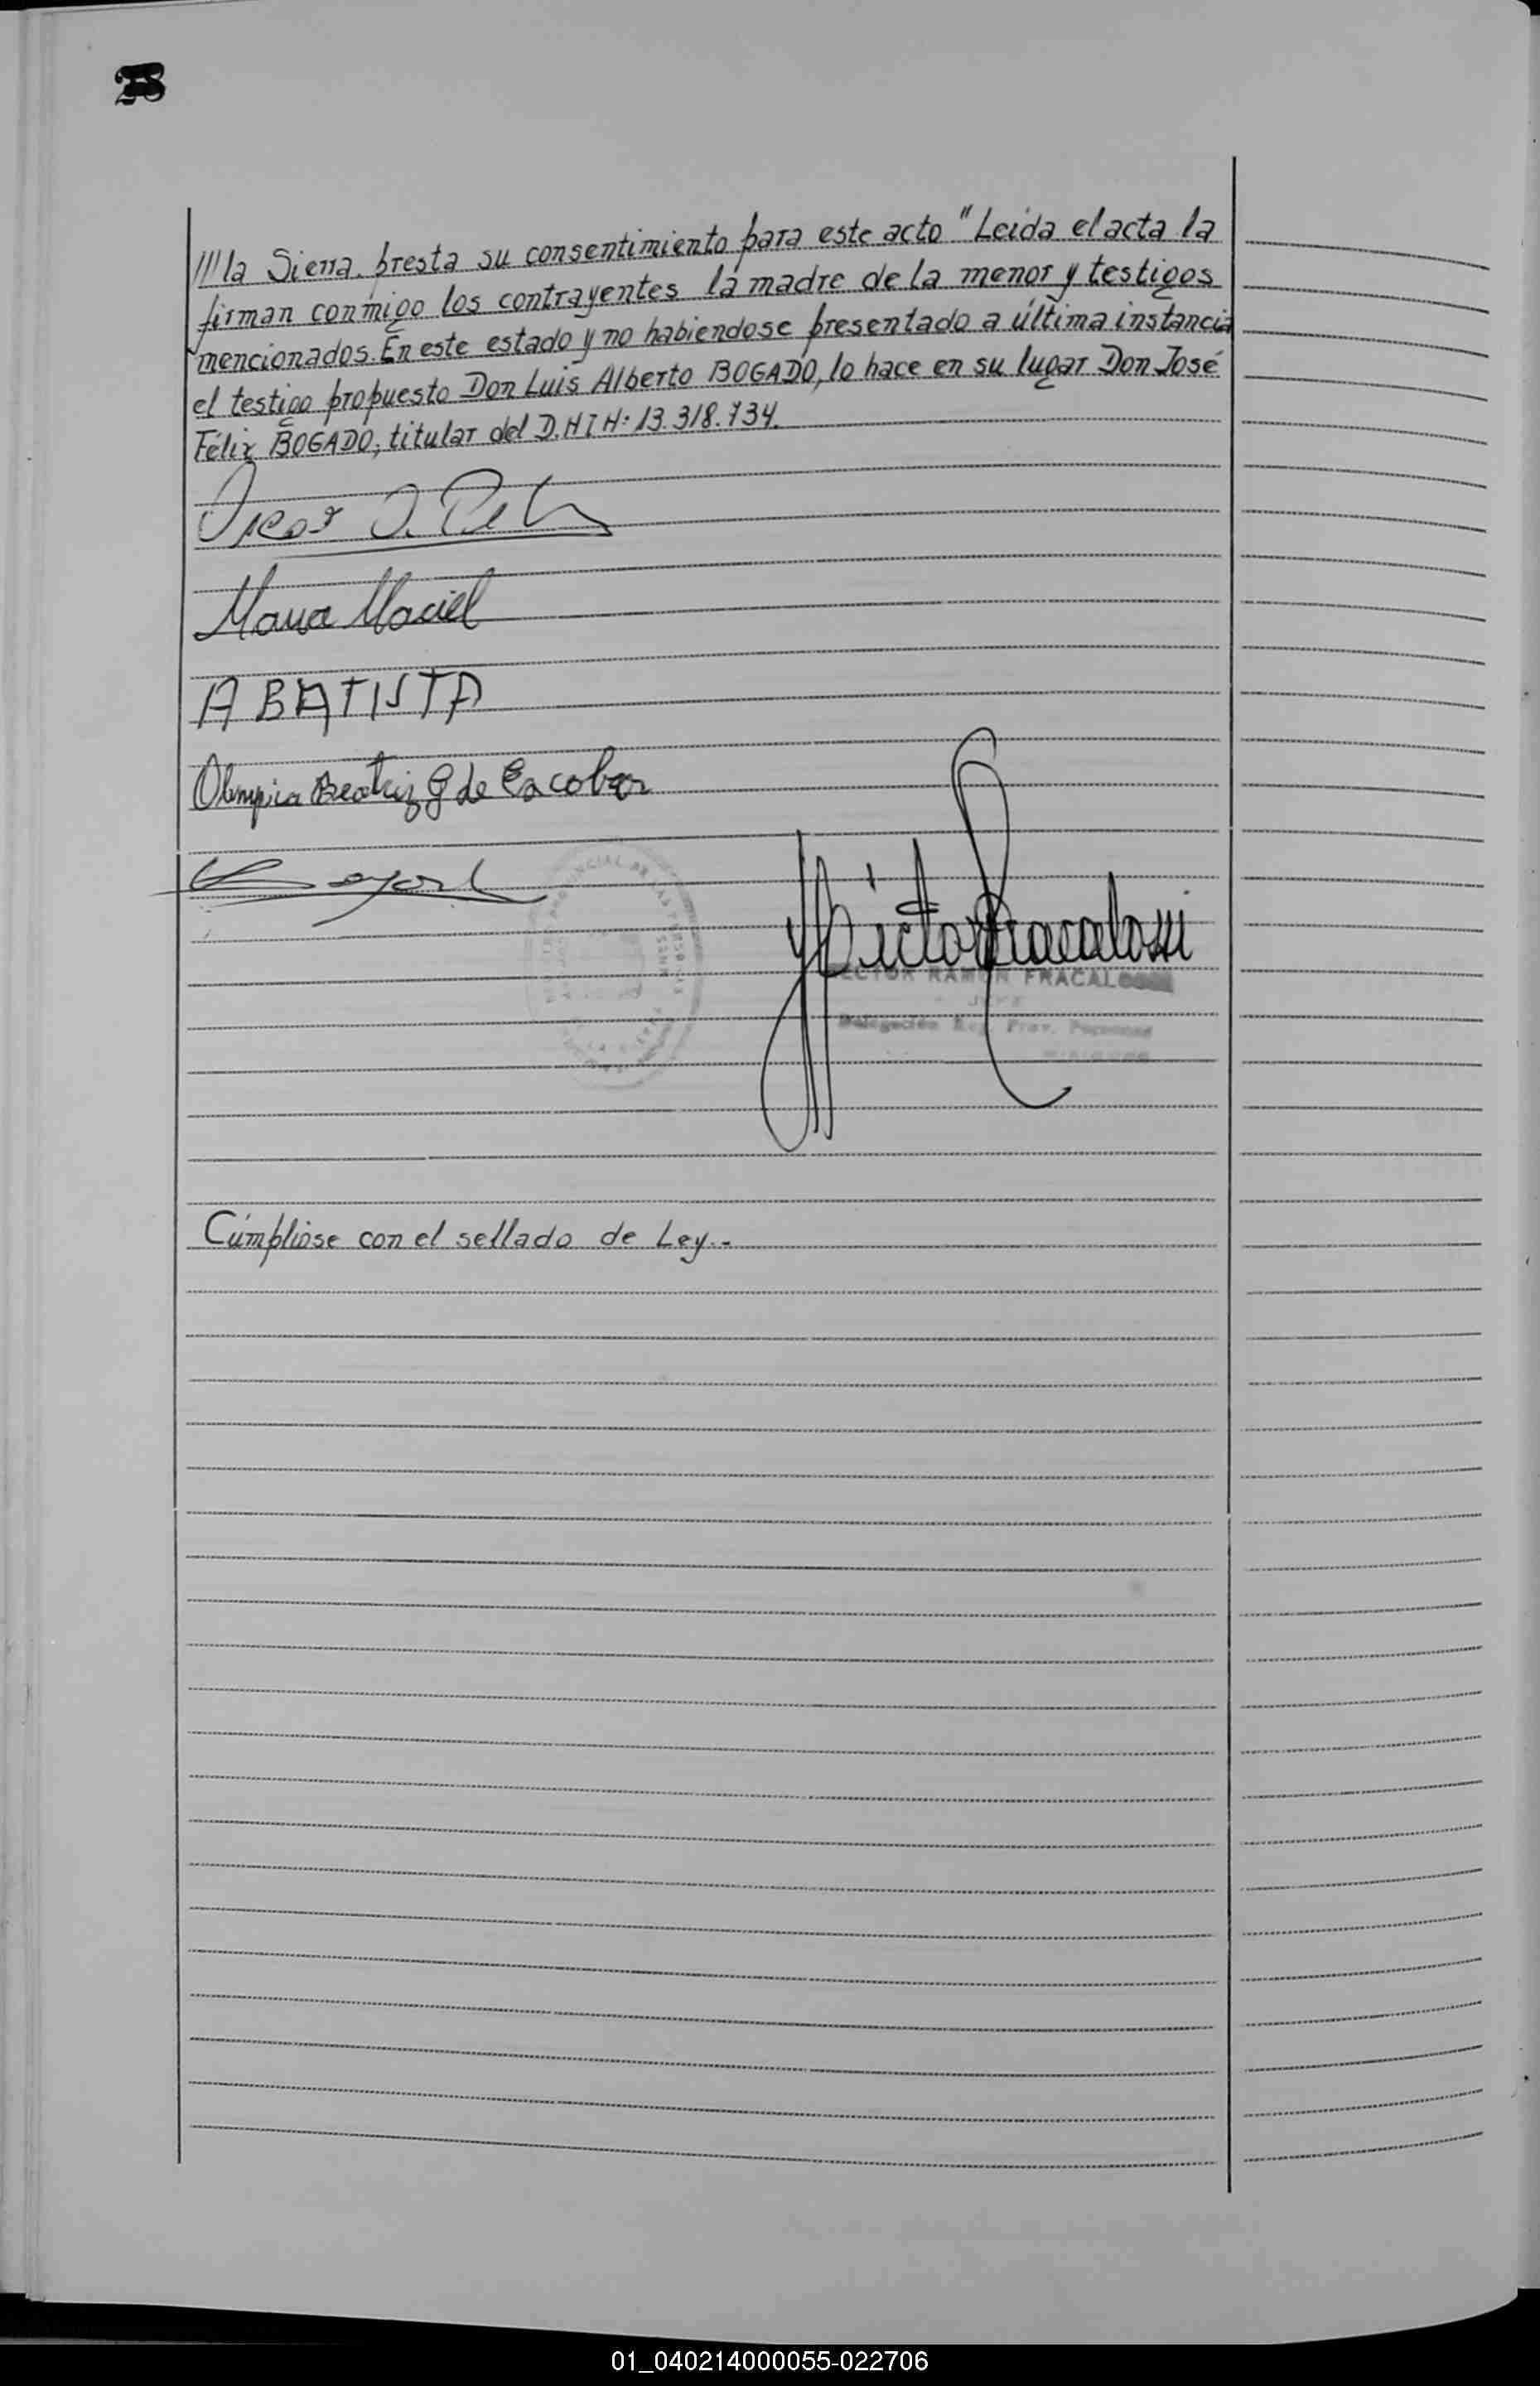 ///la Sierra presta su consentimiento para este acto "Leida el acta la
firman conmigo los contrayentes la madre de la menor y testigos
mencionados. En este estado y no habiendose presentado a última instancia
el testigo propuesto Don Luis Alberto BOGADO, lo hace en su lugar Don José
Félix BOGADO, titular del D.N I N: 13.318.734.
Oscar O.
Maria Maciel
A BATISTA
Olimpica Beatriz G de Escobar
Hector Fracalossi
ECTOR RAMON FRACAL
JEFE
Delegación Reg. Prov. Personas
Cúmpliose con el sellado de Ley.-
01_040214000055-022706